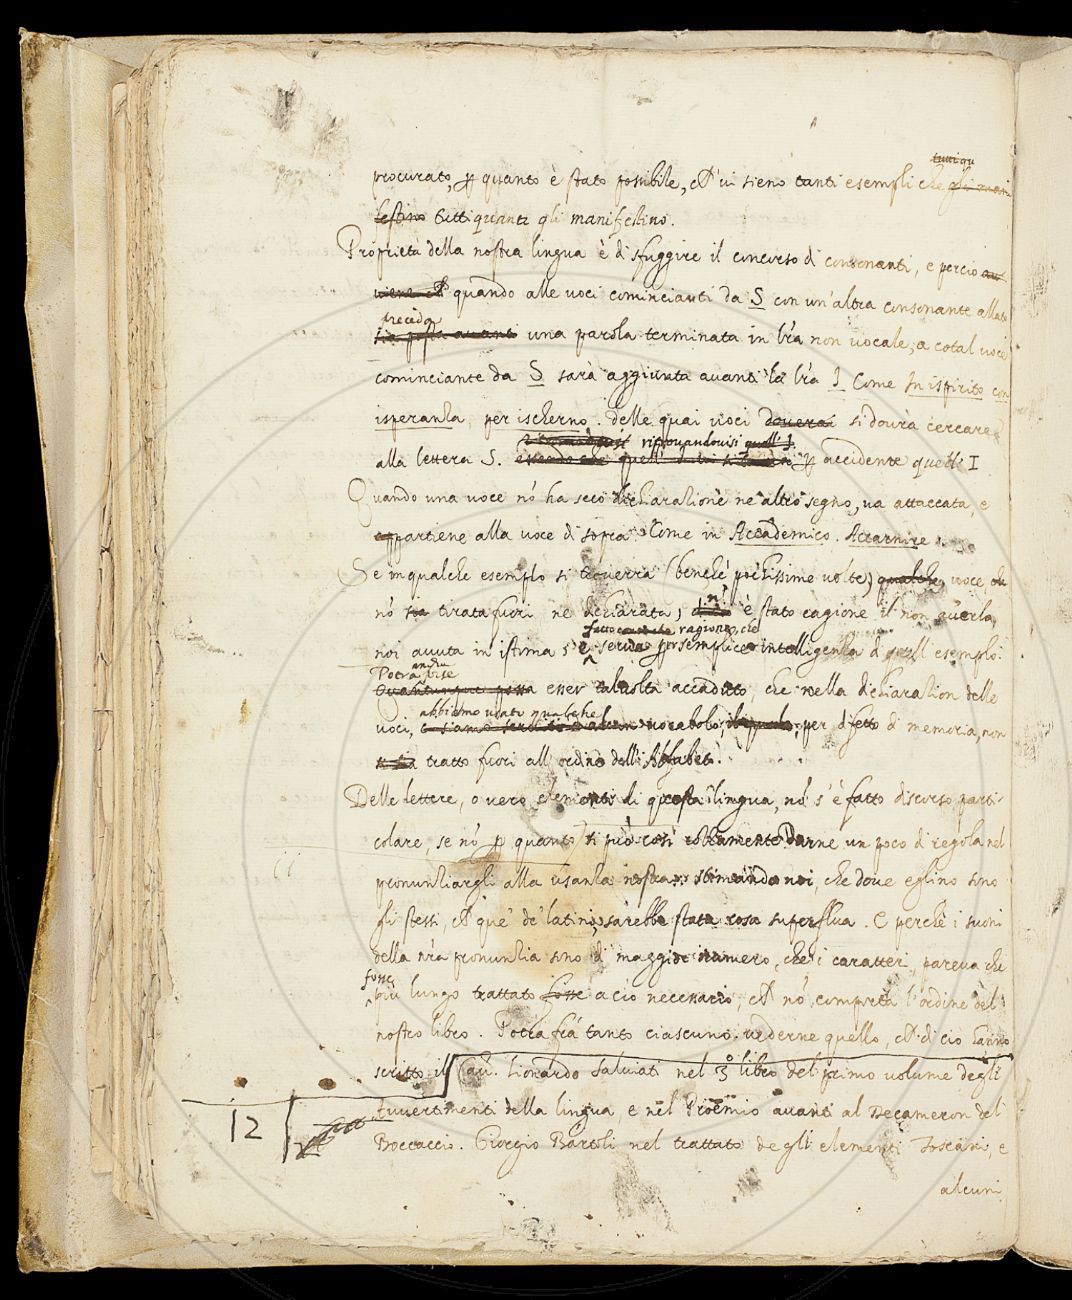 tutti qu
procurato, p quanto è stato possibile, ch' ui sieno tanti esempli che gli mani
festino tutti quanti gli manifestino.
Proprietà della nostra lingua è di sfuggire il concorso di consonanti, e perciò au
uiene ch quando alle uoci comincianti da S con un'altra consonante allato
preceda
una parola terminata in lr̃a non uocale, a cotal uoce
cominciante da S sarà aggiunta auanti la lr̃a I Come In ispirito con
isperanza, per ischerno. delle quai uoci douerai si dourà cercare
ritrouandouisi quell' I
alla lettera S. p accidente quell' I
Quando una uoce nõ ha seco dichiarazione ne altro segno, ua attaccata, e
appartiene alla uoce di sopra Come in Accademico. Attarnire.
Se in qualche esemplo si trouerrà (benche pochissime uolte) qualche uoce, che
nõ sia tirata fuori, ne dichiarata, n' è stato cagione il non hauerla
ragione, che
noi auuta in istima, e serue per semplice intelligenza di quell' esemplo.
Potrà anche forse
Quantunque possa esser taluolta accaduto, che nella dichiarazion delle
abbiamo usato qualche
uoci, uocabolo, il quale, per difetto di memoria, non
si sia tratto fuori all' ordine dell' Alfabeto.
Delle lettere, o uero elementi di questa lingua, nõ s'è fatto discorso parti-
colare, se nõ p quanto si può così rozzamente Darne un poco di regola nel
pronunziargli alla usanza nostra: stimando noi, che doue eglino sono
gli stessi, ch que' de' latini, sarebbe stata cosa superflua. E perchè i suoni
della nr̃a pronunzia sono di maggior numero, che i caratteri, pareua che
fosse
più lungo trattato fosse a cio necessario, ch nõ comporta l'ordine del
nostro libro. Potrà frà tanto ciascuno uederne quello, ch di ciò hanno
scritto il Cau. Lionardo Saluiati nel 3° libro del primo uolume degli
12
Auuertimenti della lingua, e nel Proemio auanti al Decameron del
Boccaccio. Giorgio Bartoli nel trattato degli elementi Toscani, e
alcuni